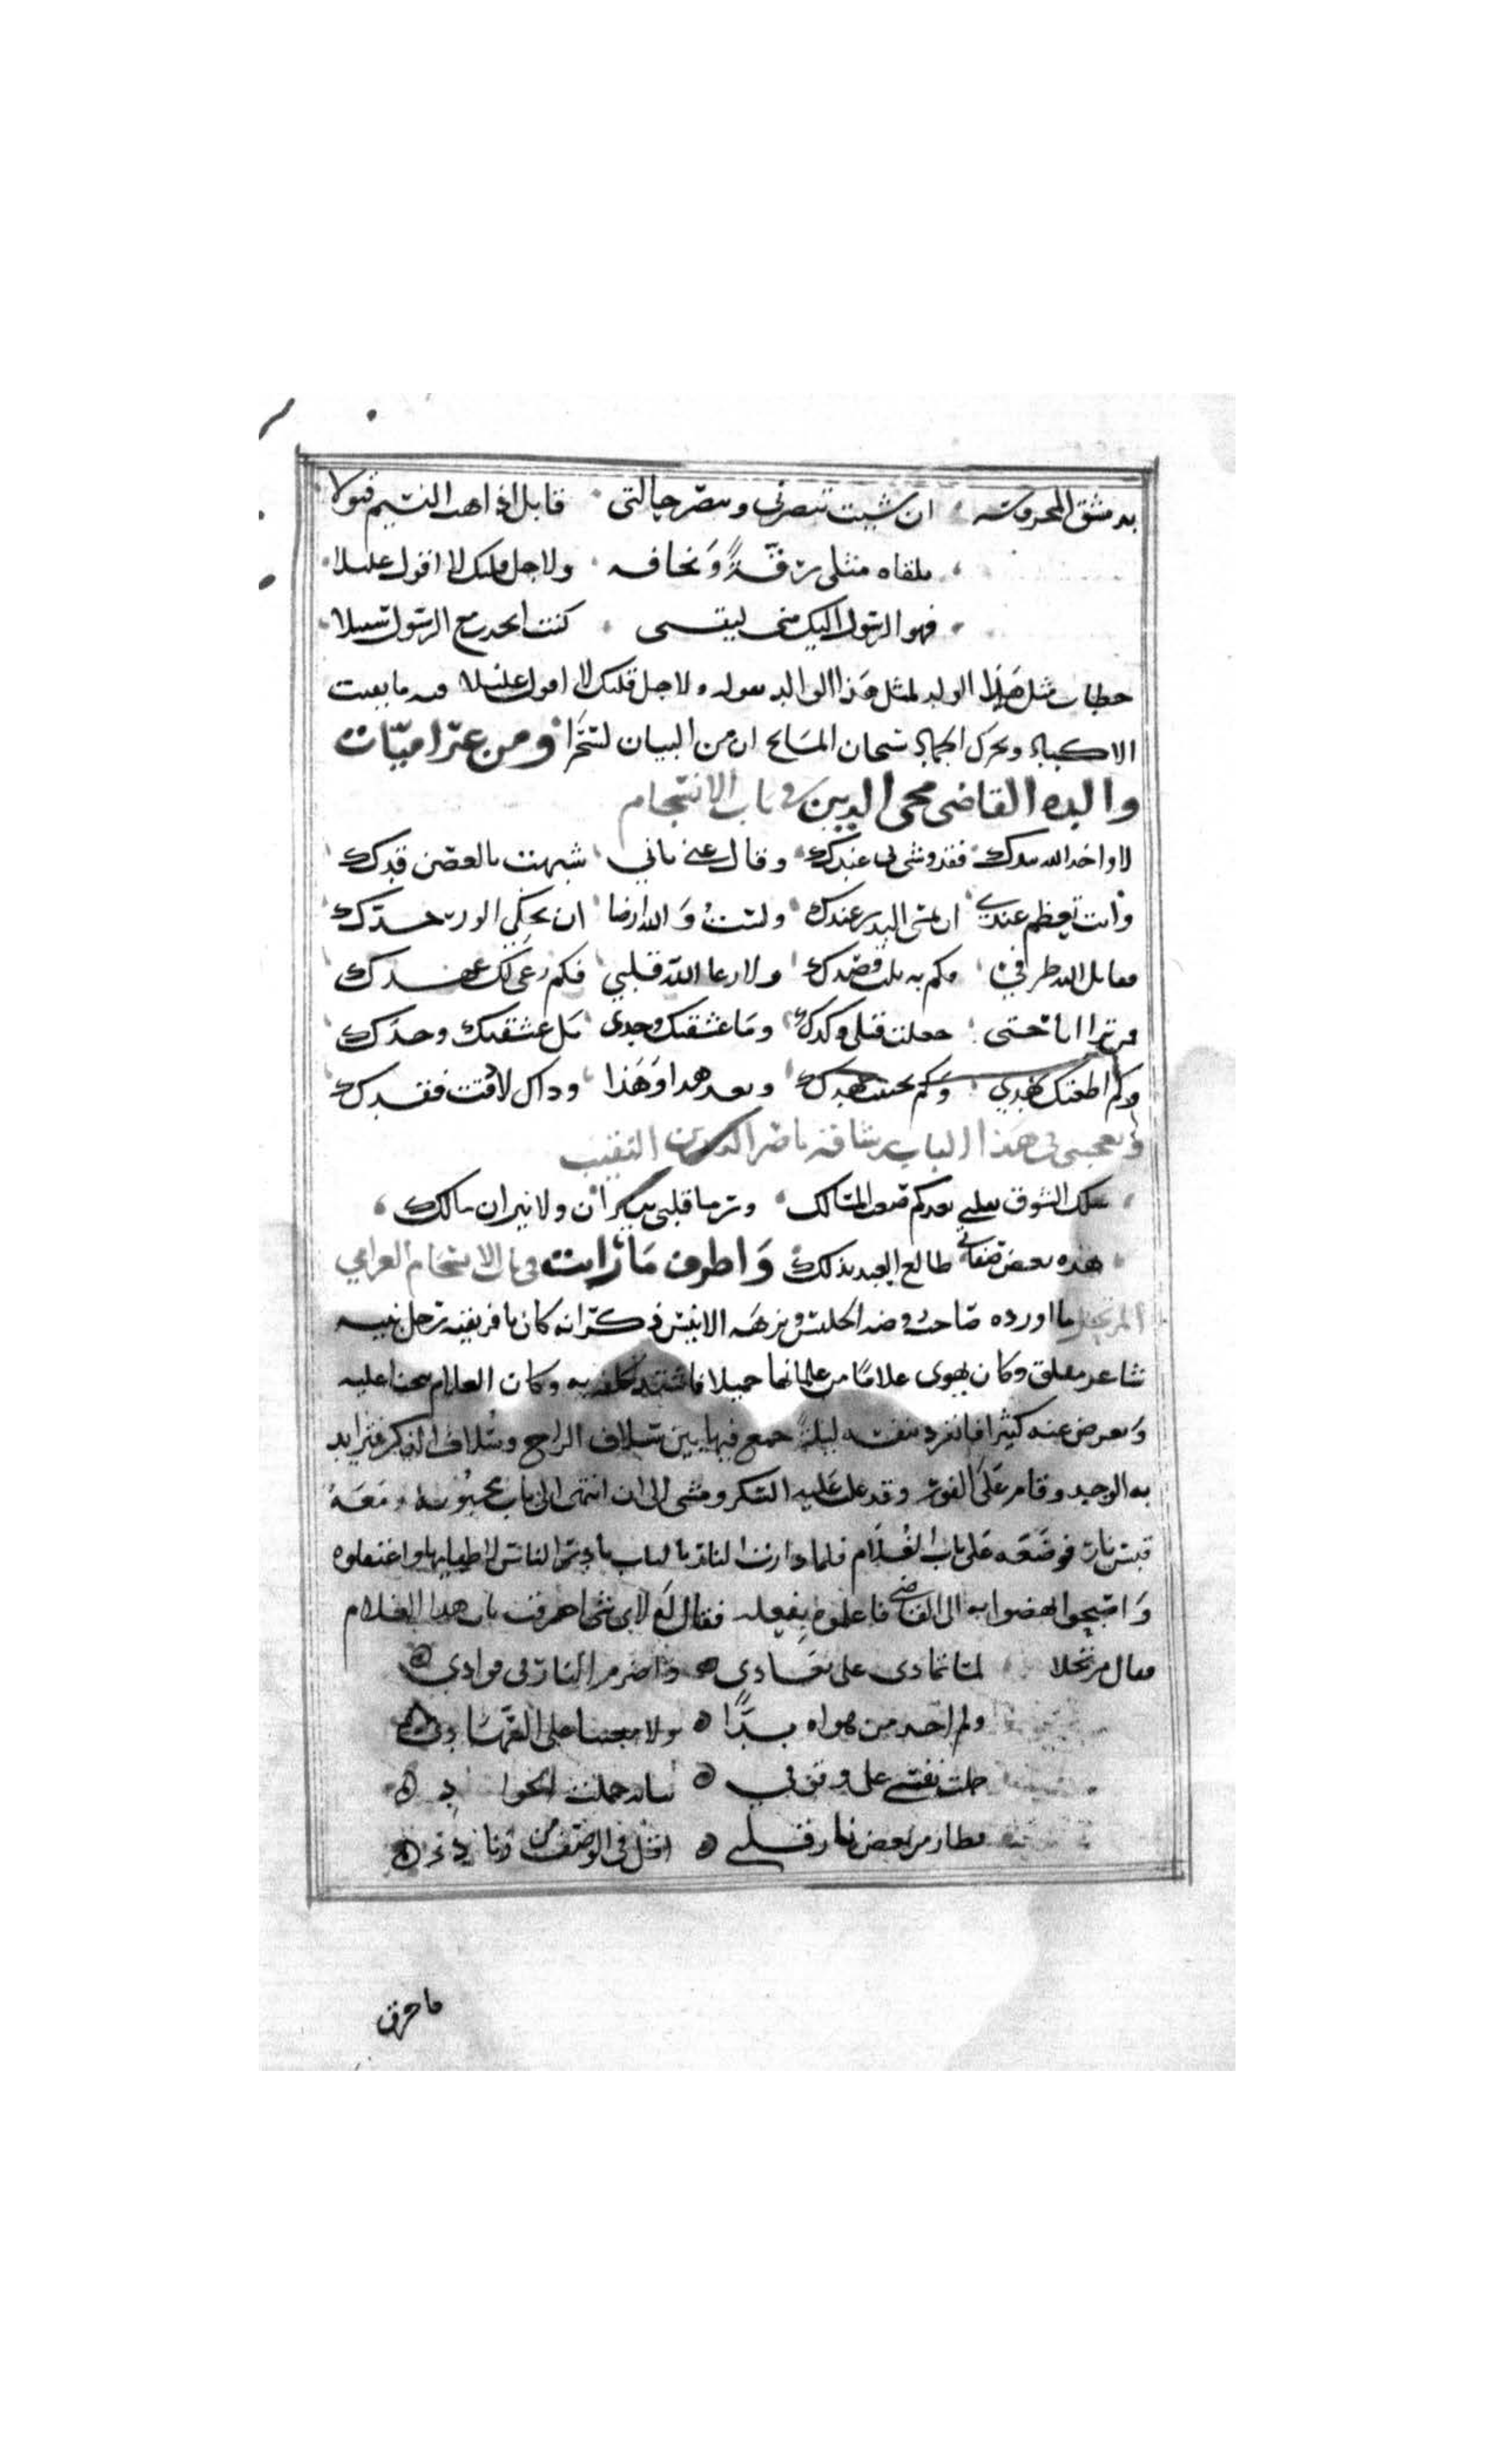 بدمشق المحروسه ان شيت تنصرني وتنصر حالتي قابل اذا هب النسيم قبولا
تلقاه مثلي رقةً ونحافه ولاجل قلبك لا اقول عليلا
فهو الرسول اليك مني ليتني كنت اتخذت مع الرسول سبيلا
خطاب مثل هذا الولد لمثل هذا الوالد بقوله ولاجل قلبك لا اقول عليلا فيه ما يفتت
الاكباد ويحرك الجماد سبحان المانح ان من البيان لسحرا ومن غراميات
والده القاضي محيي الدين في باب الانسجام
لا واخذ الله بندك فقد وشى بي عندك وقال عني باني شبهت بالغصن قدك
وانت تعظم عندي ان يمشي البدر عندك ولست والله ارضا ان يحكي الورد خدك
فقابل الله طرفي فكم به نلت قصدك ولا رعا الله قلبي فكم رعى لك عهدك
فر ترا انا حتى جعلت قتلي وكدك وما عشقتك وحدي بل عشقتك وحدك
وكم اطعتك جهدي وكم تجنبت جهدك وبعد هدا وهذا وداك لا دقت فقدك
ويعجبني في هذا الباب رشاقة ناصر الدين النقيب
سلك الشوق بقلبي بعدكم صعب المسالك وترما قلبي بنيران ولا نيران مالك
هذه بعض صفاتي طالع العبد بذلك واطرف ما رايت في باب الانسجام الغرامي
المرتجل ما اورده صاحب روضة الجليس ونزهة الانيس ذكر انه كان بافريقية رجل نبيه
شاعر مفلق وكان يهوى غلامًا من غلمانها جميلا فاشتد كلفه به وكان الغلام يتجنا عليه
ويعرض عنه كثيرا فانفرد بنفسه ليلةً جمع فيها بين سلاف الراح وسلاف الذكر فتزايد
به الوجد وقام على الفور وقد غلب عليه السكر ومشى الى ان انتهى الى باب محبوبه ومعه
قبس نار فوضعه على باب الغلام فلما دارت النار بالباب بادر الناس لاطفايها واعتقلوه
واصبحوا نهضوا به الى القاضي فاعلموه بفعله فقال له لاي شي احرقت باب هدا الغلام
فقال مرتجلا لما تمادى على بعادي واضرم النار في فوادي
ولم اجد من هواه بدًّا ولا معينا على السهاد
حملت نفسي على وقوفي ببابه حملت الجواد
فطار من بعض نار قلبي اقل في الوصف من زناد
ما حرق